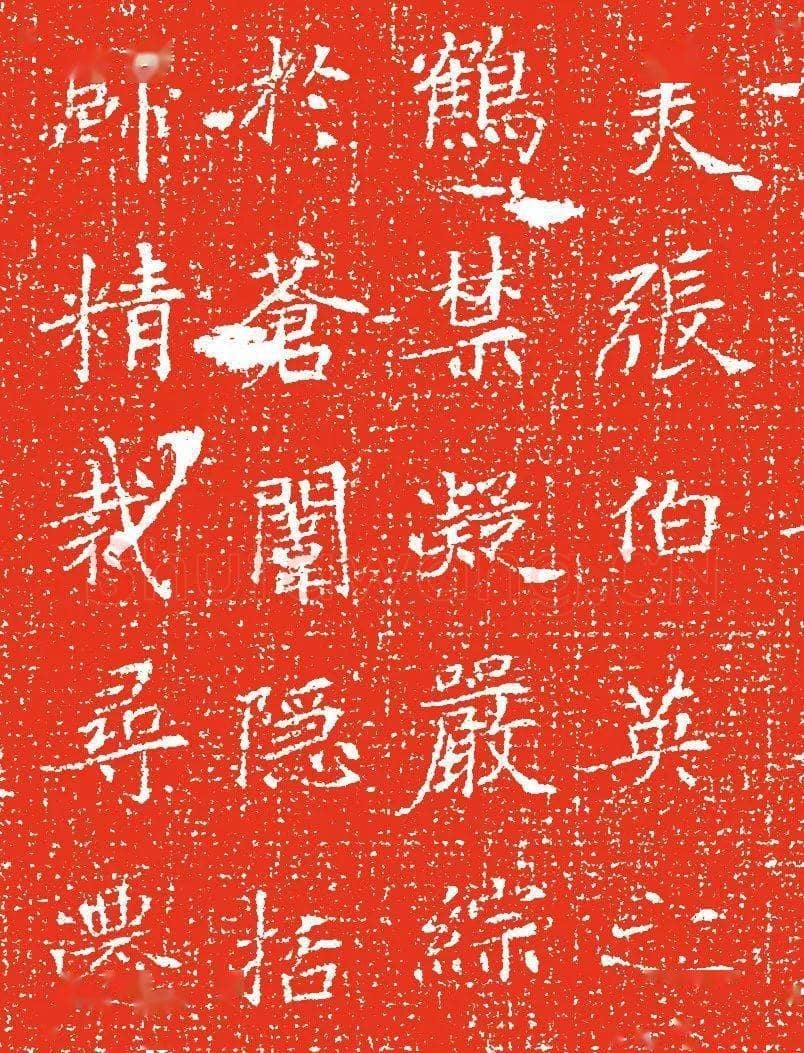 張伯英之
鶴禁凝嚴綜
於蒼闈隱括
師精裁尋